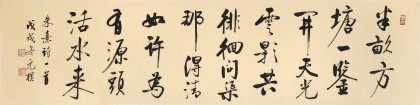 半畝方
塘一鑒
開天光
雲影共
徘徊問渠
那得清
如許為
有源頭
活水来
朱熹詩一首
戊戌